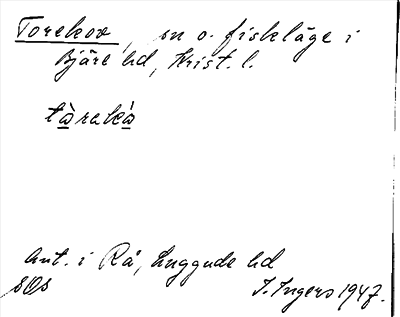 Torekov, sn o. fiskläge i
Bjäre hd, Krist. l.
tàreká
Ant. i Rå, Luggude hd
SOs I. Ingers 1947.